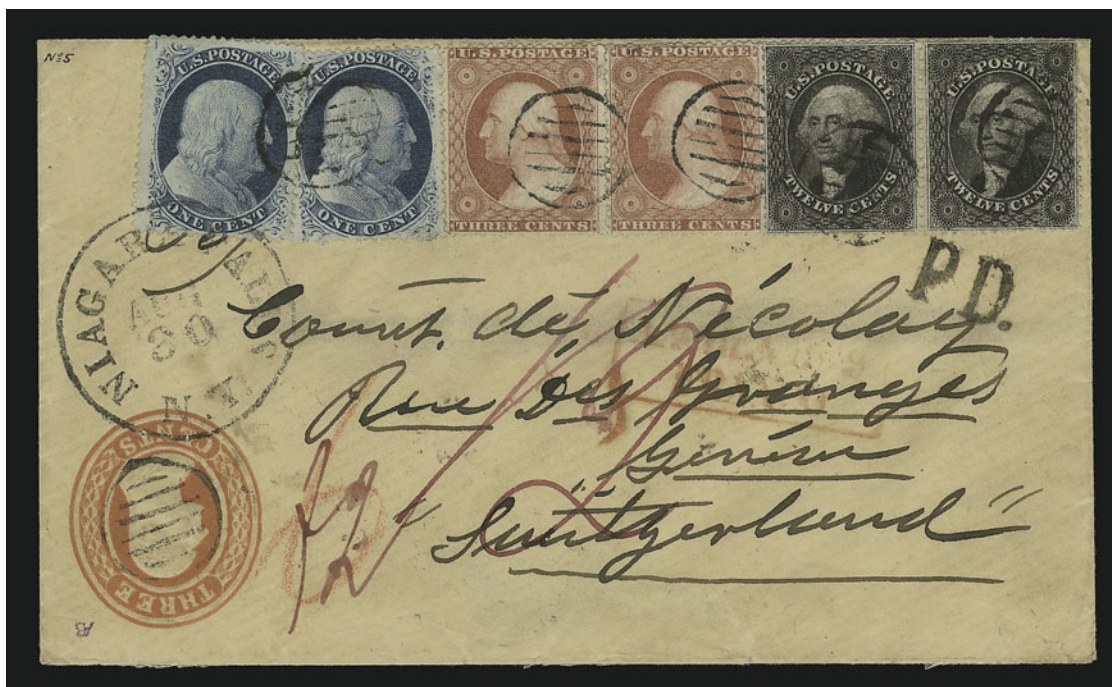 Nº5
U.S. POSTAGE
ONE CENT
U.S. POSTAGE
ONE CENT
U.S. POSTAGE
THREE CENTS
U.S. POSTAGE
THREE CENTS
U.S. POSTAGE
TWELVE CENTS
U.S. POSTAGE
TWELVE CENTS
NIAGARA FALLS
30
N.Y.
P.D.
Count. de Nicolay.
Rue Des Granges
Genève
"Switzerland"
THREE
CENTS